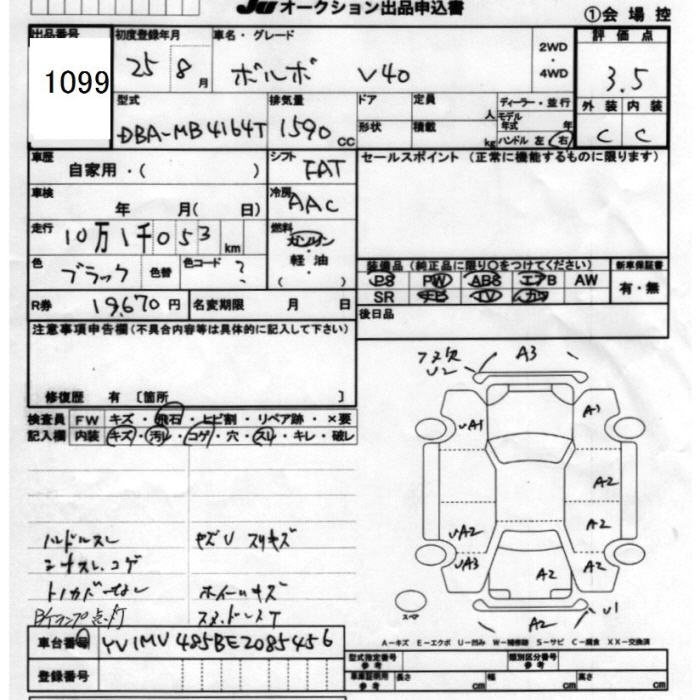 JU オークション出品申込書
①会場控
出品番号 初度登録年月 車名・グレード 2WD・4WD 評価点
1099 25 8月 ボルボ V40 3.5
型式 排気量 ドア 定員 人 ディーラー・並行 外装 内装
DBA-MB4164T 1590 CC 形状 積載 kg モデル年式 年 ハンドル 左 右 C C
車歴 自家用・( ) シフト FAT セールスポイント (正常に機能するものに限ります)
車検 年 月( 日) 冷房 AAC
走行 10万1千053 km 燃料 ガソリン 軽油
色 ブラック 色替 色コード ? 装備品(純正品に限り○をつけてください) 新車保証書
PS PW ABS エアB AW 有・無
SR ナビ TV カワ
R券 19,670円 名変期限 月 日 後日品
注意事項申告欄(不具合内容等は具体的に記入して下さい)
修復歴 有 [箇所 ]
検査員 FW キズ・飛石・ヒビ割・リペア跡・×要
記入欄 内装 キズ・汚レ・コゲ・穴・スレ・キレ・破レ
U2 A3
UA1 A1
A2
UA2 A2
UA3 A2
A2 U1
スペア
ハンドルスレ キズU スリキズ
シートスレ.コゲ
トノカバーなし ホイールキズ
点灯
A-キズ E-エクボ U-凹み W-補修跡 S-サビ C-腐食 XX-交換済
車台番号 YV1MV485BE2085456 型式指定番号 参考 類別区分番号 参考
登録番号 車庫証明用 参考 長さ cm 幅 cm 高さ cm